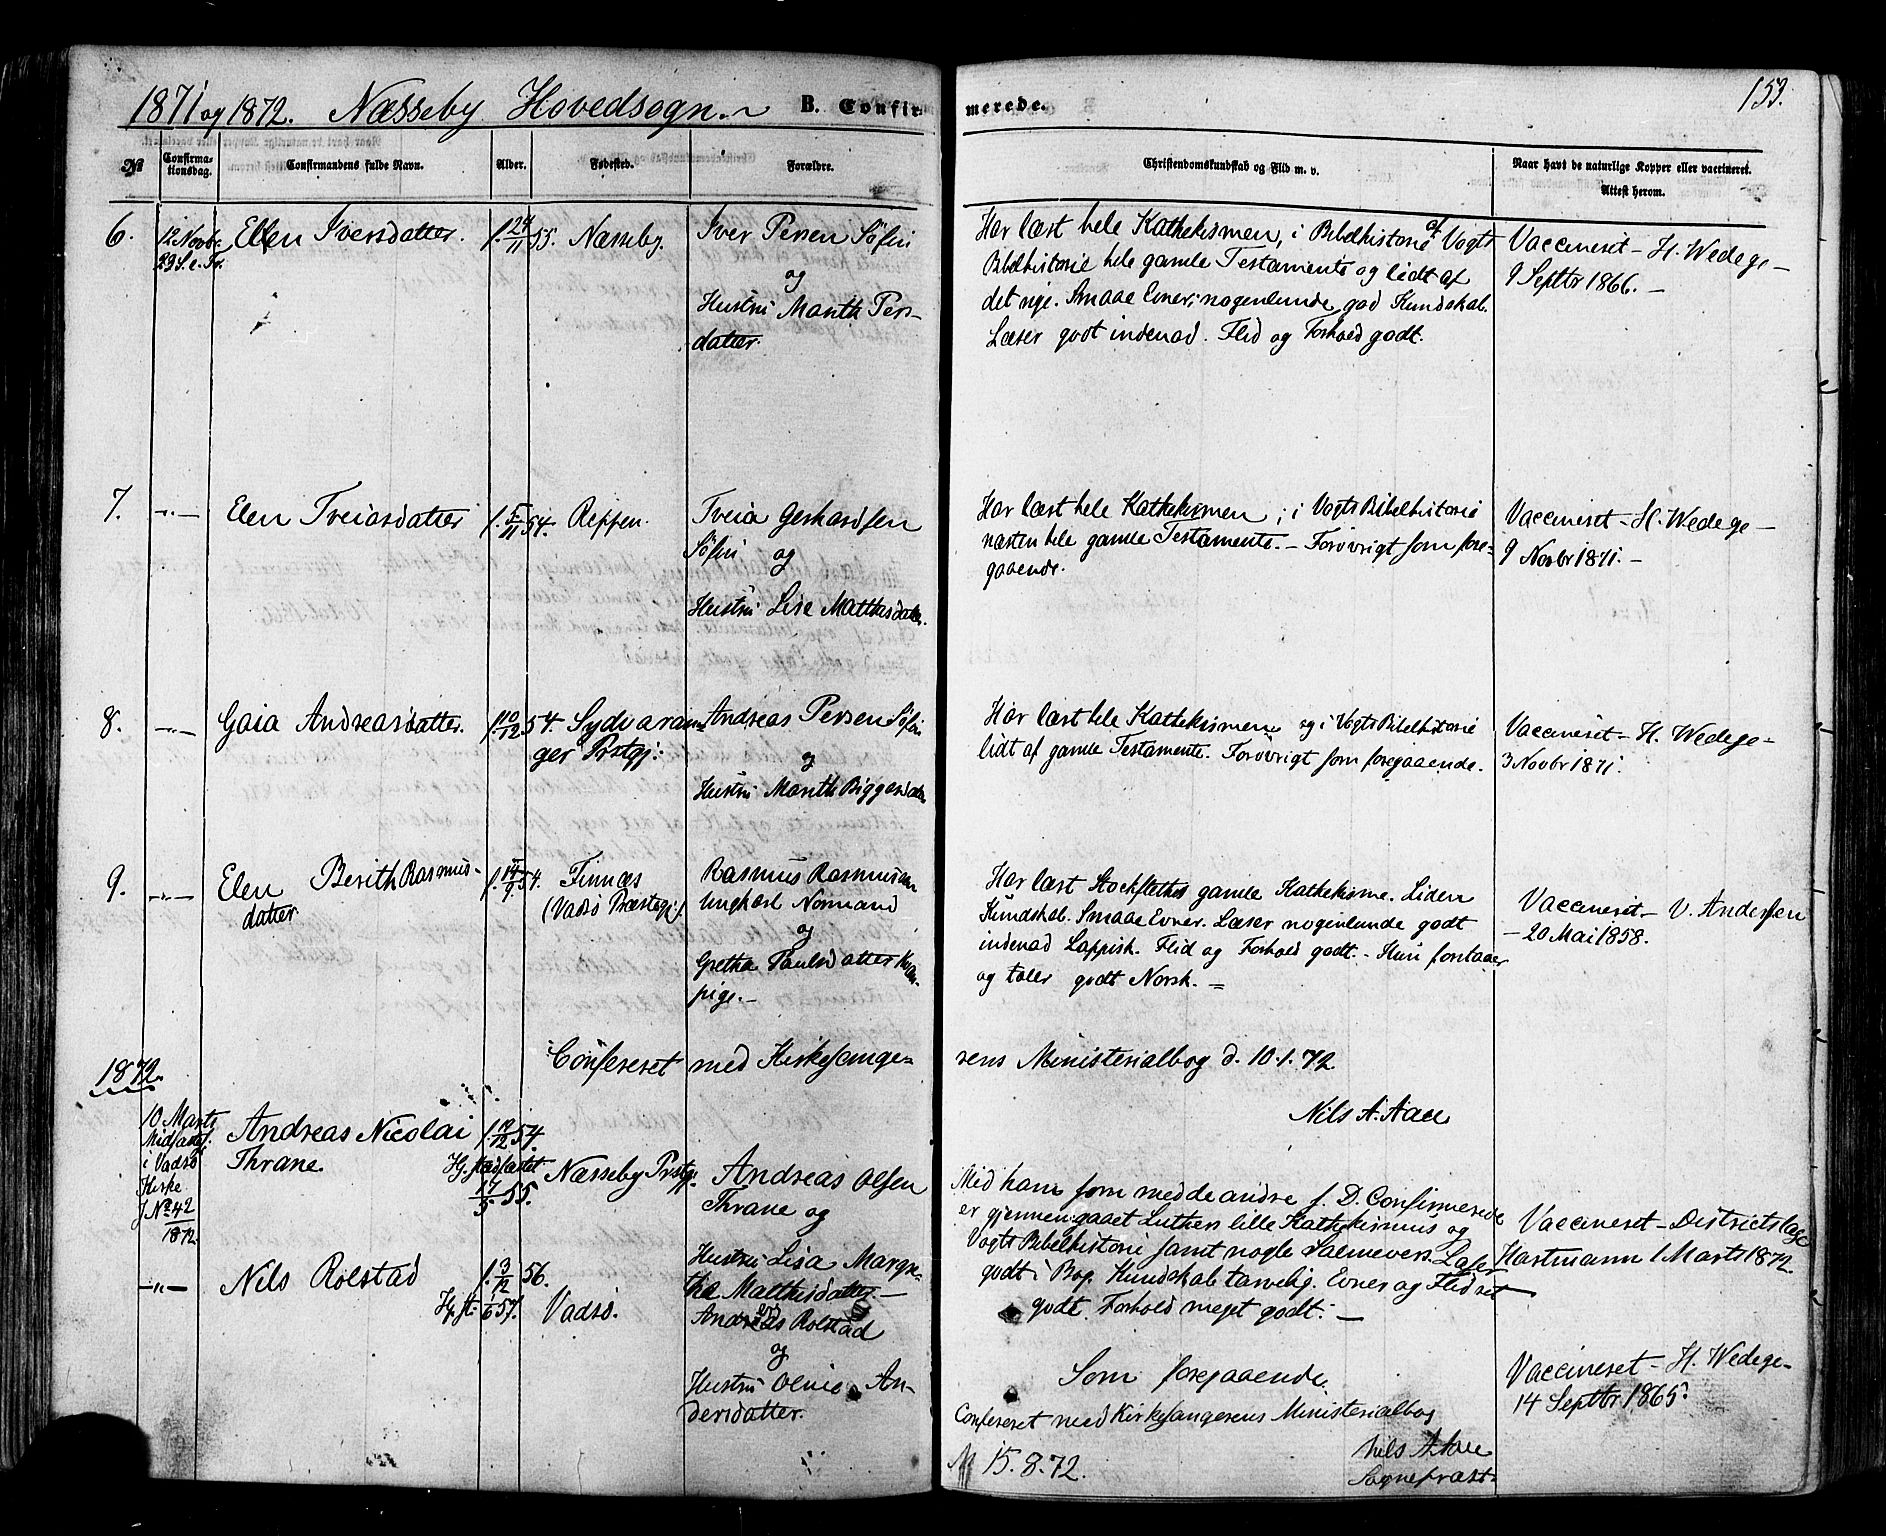 1871 og 1872. Næsseby Hovedsogn. B. Confirmerede. 153.
№ Confirmationsdag. Confirmandens fulde Navn. Alder. Fødested. Forældre. Christendomskundskab og Flid m. v. Naar havt de naturlige Kopper eller vaccineret. Attest herom.
6. 12 Novbr. 23 S. e. Tr. Ellen Iversdatter. f. 24/11 55. Næsseby.
Iver Persen Søfin
og
Hustru Marith Pers-
datter.
Har læst hele Kathekismen, i Bibelhistorie af Vogts
Bibelhistorie hele gamle Testamente og lidt af
det nye. Smaae Evner; nogenlunde god Kundskab.
Læser godt indenad. Flid og Forhold godt.
Vaccineret – H. Wedege –
9 Septbr 1866. –
7. –"– Elen Iveiasdatter f. 5/11 54. Reppen.
Iveia Gerhardsen
Søfin og
Hustru Lise Matthisdatter.
Har læst hele Kathekismen; i Vogts Bibelhistorie
næsten hele gamle Testamente. – Forøvrigt som fore-
gaaende.
Vaccineret – H. Wedege –
9 Novbr 1871. –
8. –"– Gaia Andreasdatter. f. 10/12 54. Sydvaran-
ger Prstgj:
Andreas Persen Søfin
og
Hustru Marith Biggasdatter
Har læst hele Kathekismen og i Vogts Bibelhistorie
lidt af gamle Testamente. Forøvrigt som foregaaende.
Vaccineret – H. Wedege –
3 Novbr 1871.
9. –"– Elen Berith Rasmus-
datter. f. 14/9 54. Finnæs
(Vadsø Præstegj.)
Rasmus Rasmusen
Ungkarl Normand
og
Gretha Paulsdatter
pige. –
Har læst Stockfleths gamle Kathekisme. Liden
Kundskab. Smaae Evner. Læser nogenlunde godt
indenad Lappisk. Flid og Forhold godt. – Hun forstaaer
og taler godt Norsk. –
Vaccineret – V. Andersen
– 20 Mai 1858.
Confereret med Kirkesange-
rens Ministerialbog d. 10.1.72
Nils A. Aall
1872.
10 Marts
Midfaste
i Vadsø
Kirke
J № 42
1872.
Andreas Nicolai
Thrane. f. 19/12 54.
Hj. stadfæstet
17/5 55.
Næsseby Prstgj.
Andreas Olsen
Thrane og
Hustru Lisa Margre-
tha Matthisdatter. –
Med ham som med de andre f. D. Confirmerede
er gjennemgaaet Luthers lille Kathekismus og
Vogts Bibelhistorie samt nogle Salmevers. Læser
godt i Bog. Kundskab tarvelig. Evner og Flid ret
godt. Forhold meget godt. –
Vaccineret – Districtslæge
Hartmann 1 Marts 1872.
–"– Nils Rolstad f. 3/12 56.
Hj. st. 1/6 57. Vadsø.
Anders Rolstad
og
Hustru Oline An-
dersdatter.
Som foregaaende.
Vaccineret – H. Wedege –
14 Septbr 1865.
Confereret med Kirkesangerens Ministerialbog
15.8.72.
Nils A. Aall
Sognepræst